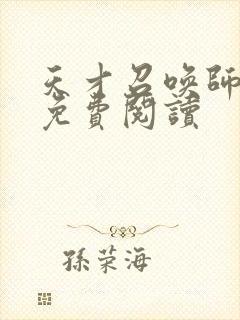 天才召喚師
免費閱讀
孫荣海